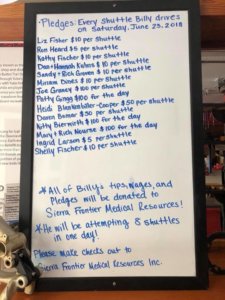 • Pledges: Every Shuttle Billy drives
on Saturday, June 23, 2018
Liz Fisher $10 per Shuttle
Ron Heard $5 per shuttle
Kathy Fischer $10 per shuttle
Dan + Hannah Kuhns $10 per shuttle
Sandy + Rich Groven $10 per shuttle
Miriam Dines $10 per shuttle
Joe Graney $100 per shuttle
Patty Gregg $100 for the day
Heidi Blankenbiller-Cooper $50 per shuttle
Daren Bomar $50 per shuttle
Kitty Bierwirth $100 for the day
Mary + Rich Nourse $100 for the day
Ingrid Larson $5 per shuttle
Shelly Fischer $10 per shuttle
* All of Billy's tips, wages, and
Pledges will be donated to
Sierra Frontier Medical Resources!
* He will be attempting 8 shuttles
in one day!
Please make checks out to
Sierra Frontier Medical Resources Inc.